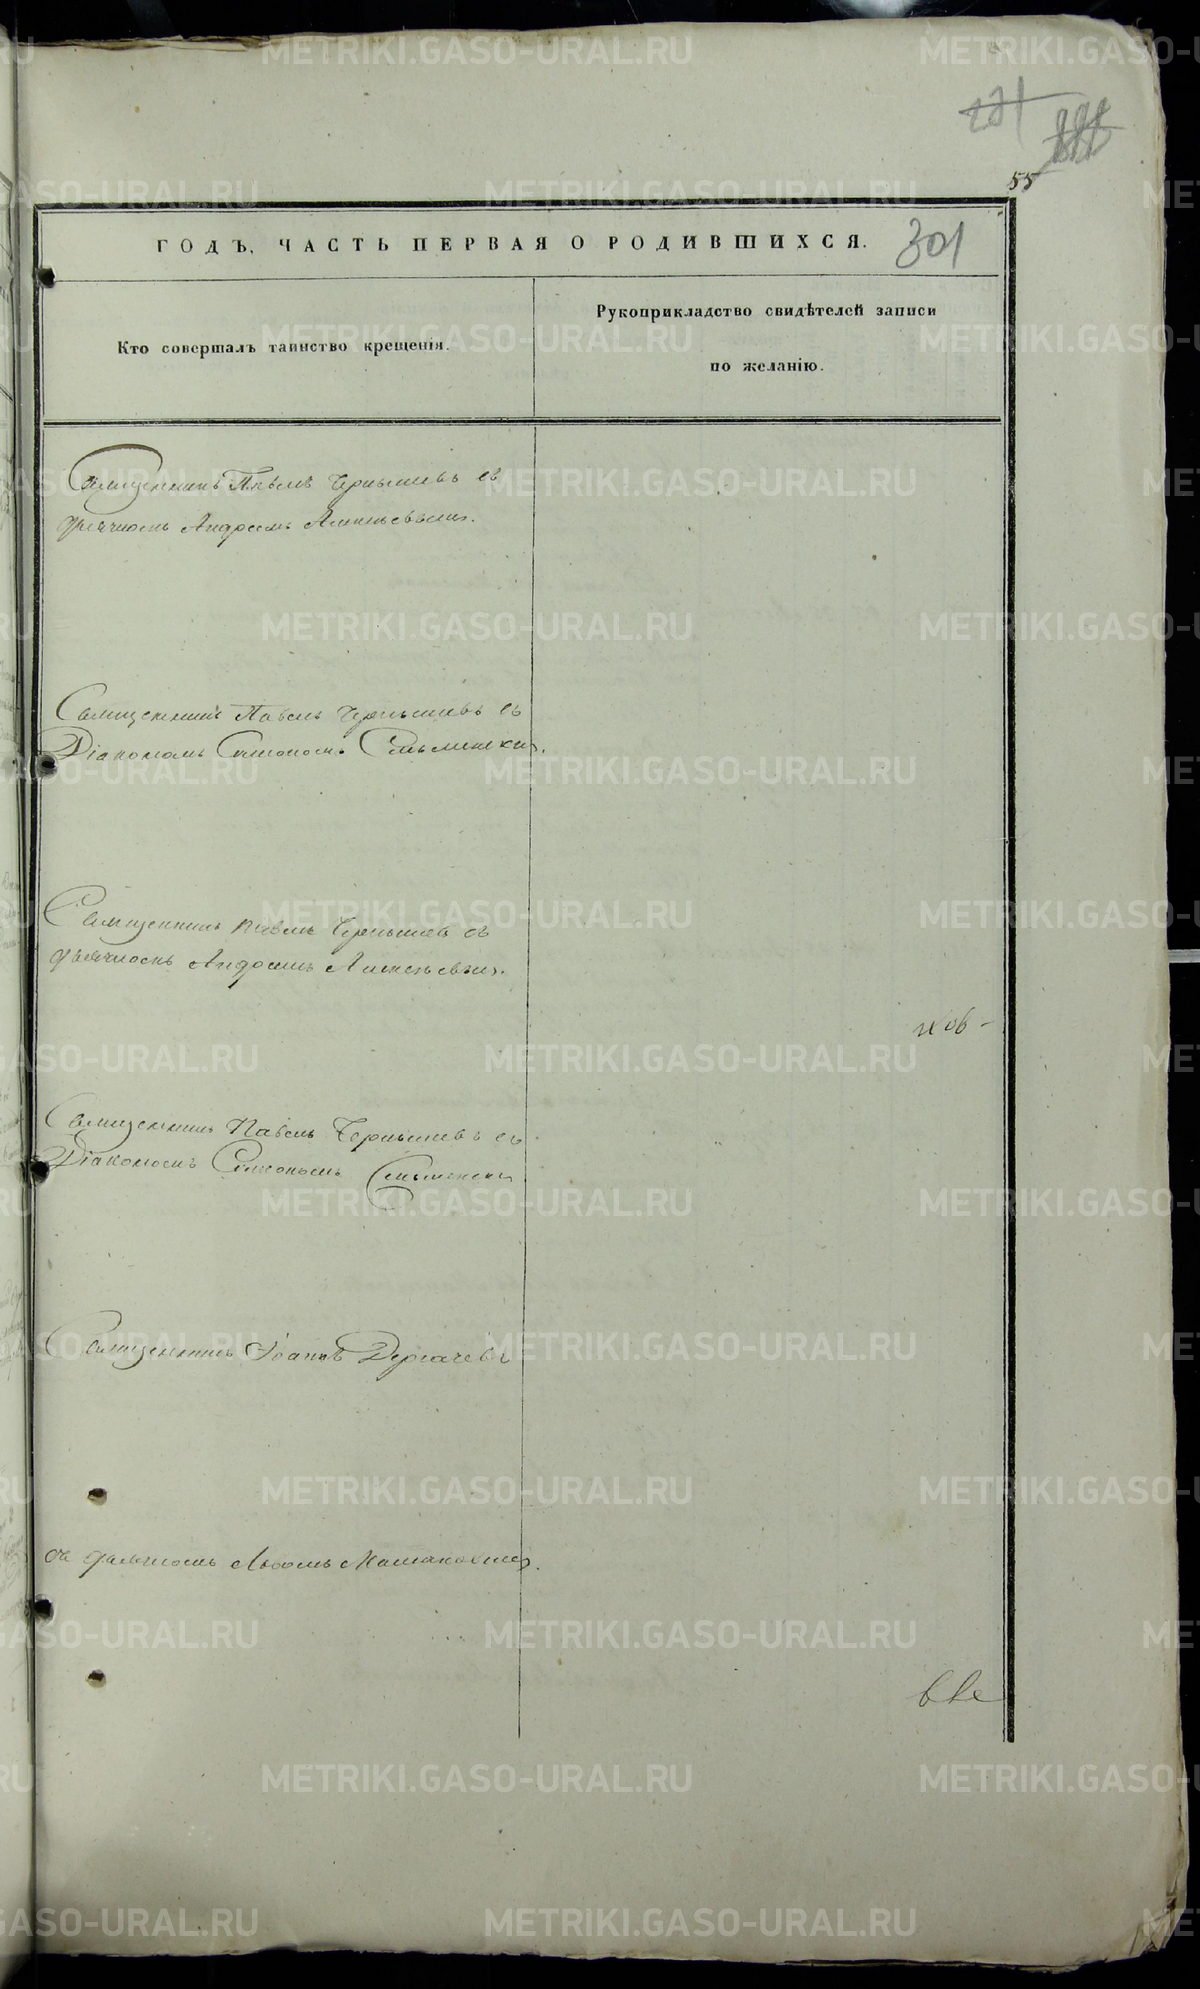 231
55
301
ГОДЪ, ЧАСТЬ ПЕРВАЯ О РОДИВШИХСЯ.
Кто совершалъ таинство крещенія.
Рукоприкладство свидѣтелей записи
по желанію.
Священникъ Павелъ Чернышевъ съ
дьячкомъ Андреемъ
Священникъ Павелъ Чернышевъ съ
Діакономъ Симеономъ
Священникъ Павелъ Чернышевъ съ
дьячкомъ Андреемъ
Священникъ Павелъ Чернышевъ съ
Діакономъ Симеономъ
Священникъ Іоаннъ Дергачевъ
съ дьячкомъ
METRIKI.GASO-URAL.RU